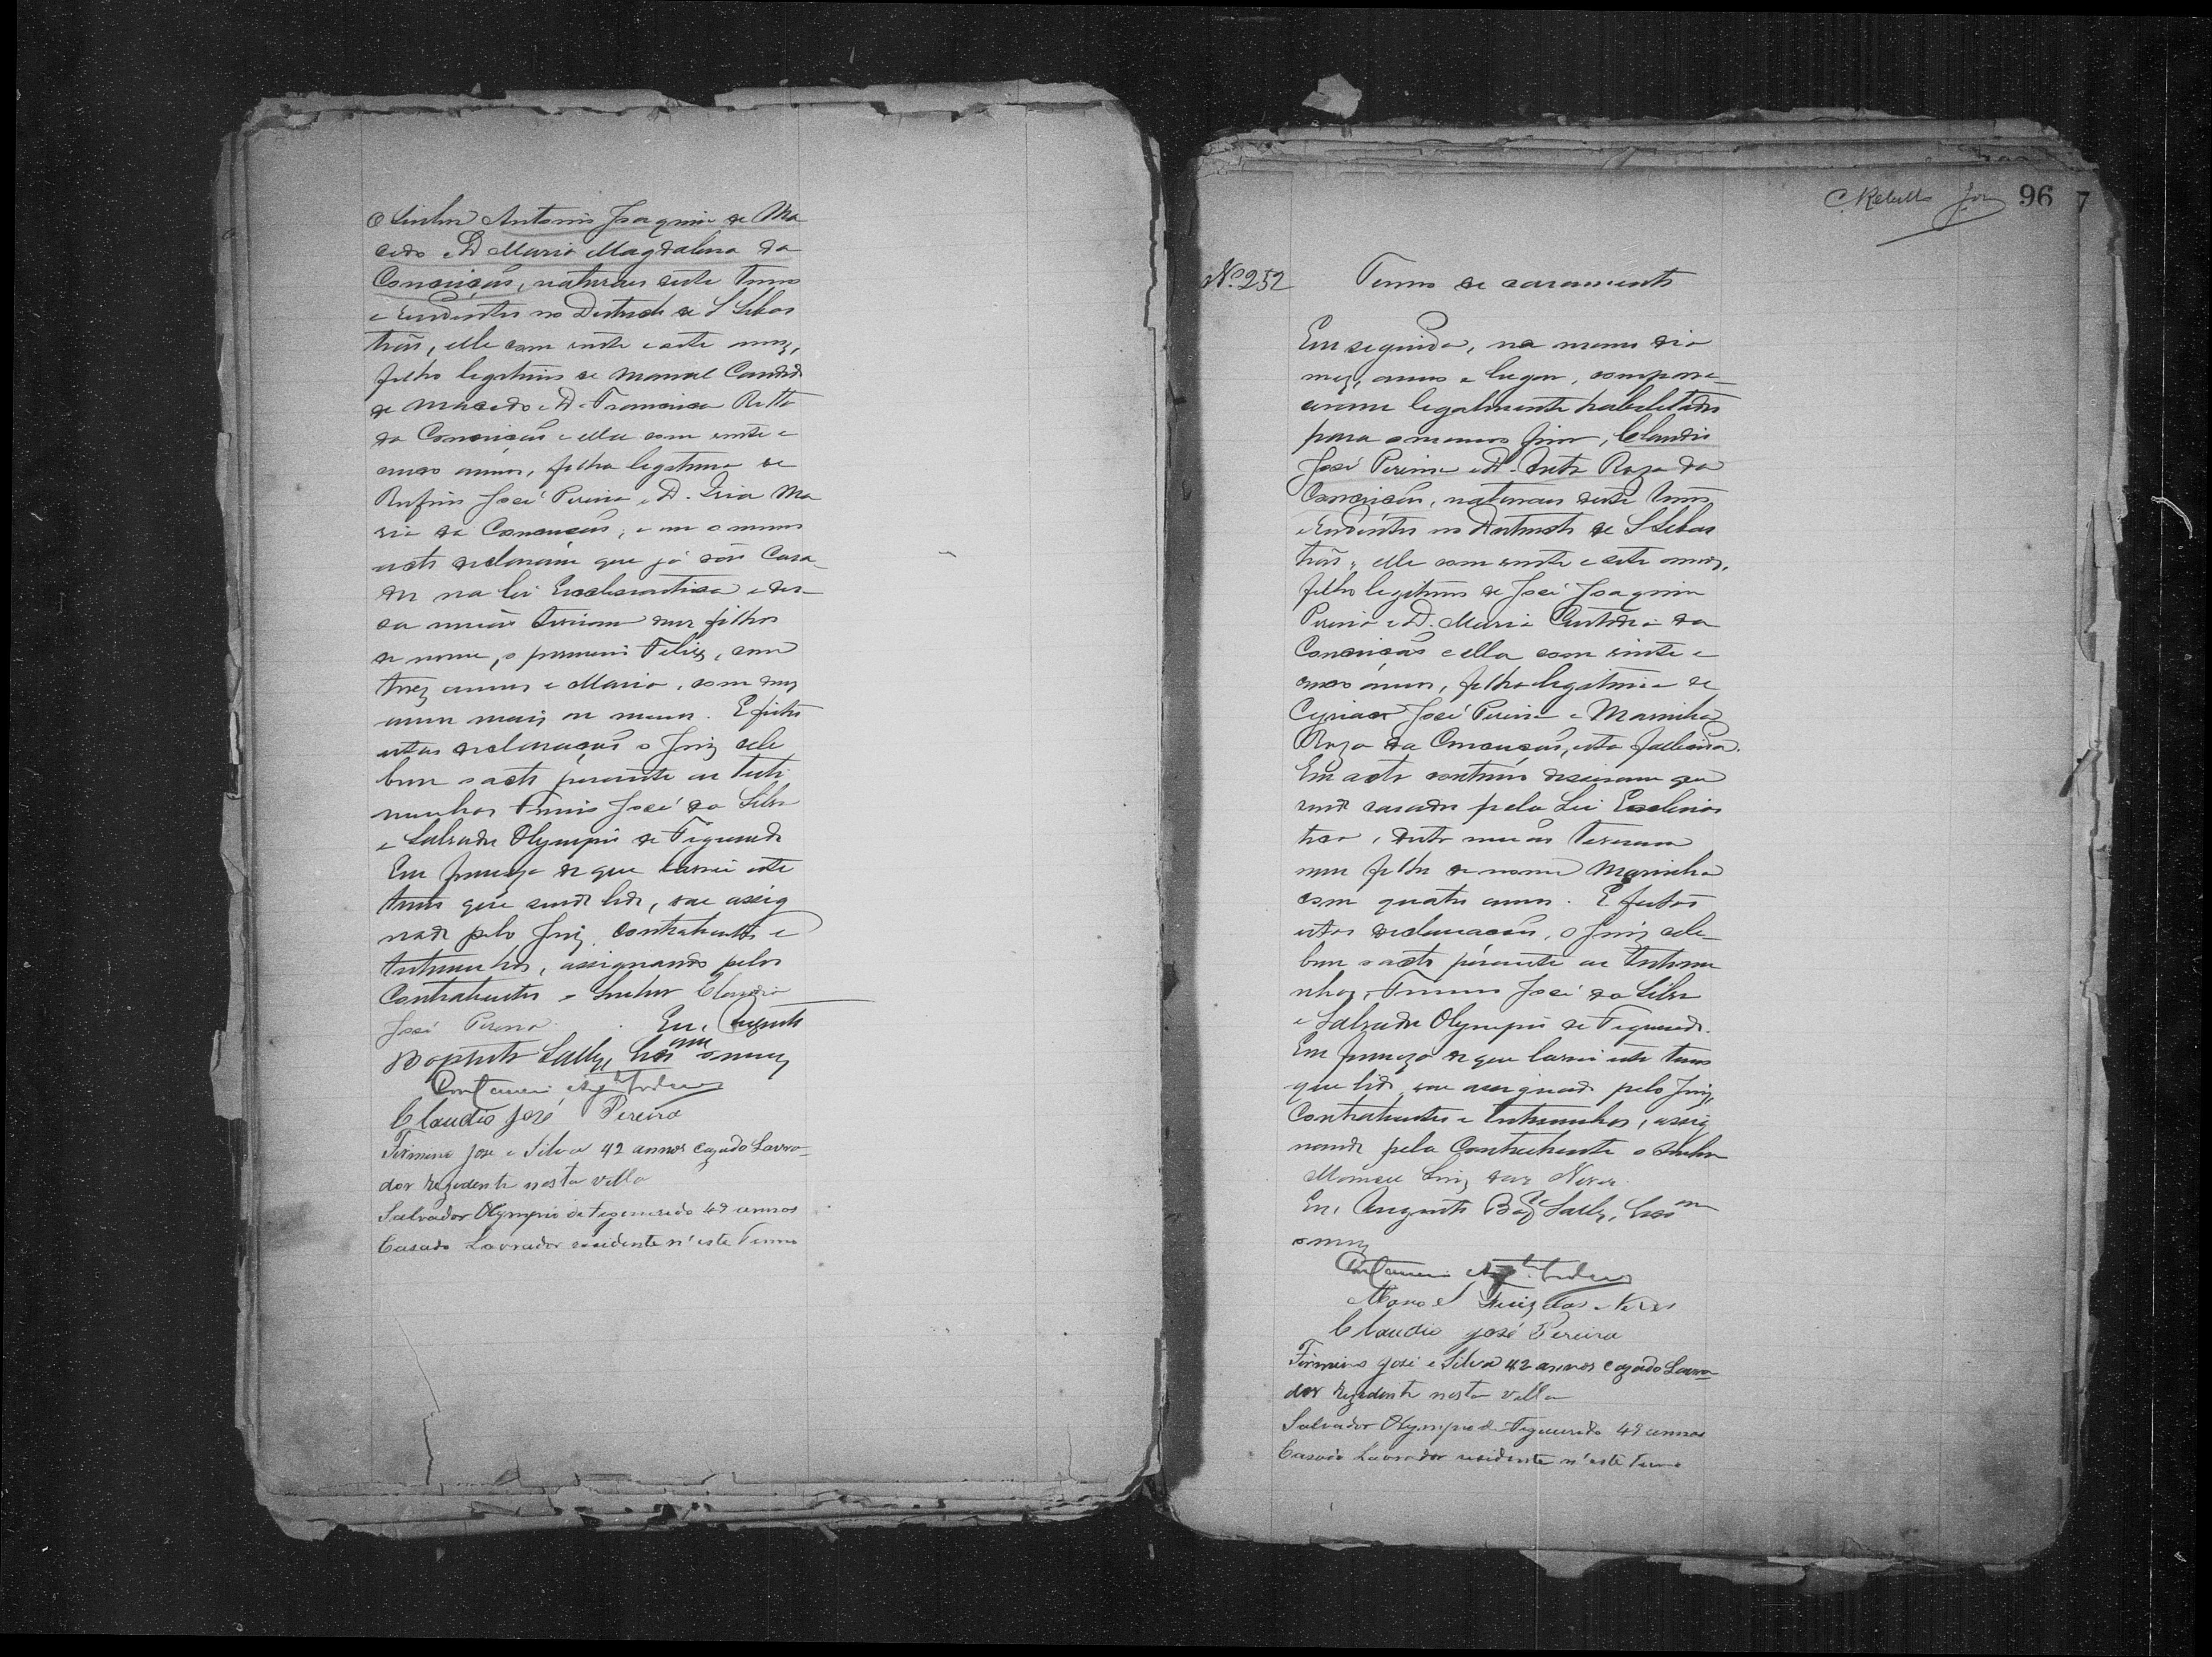 O Senhor Antonio Joaquim de Ma
cedo e D Maria Magdalena da
Conceição, naturaes deste termo
e residentes no Districto de S Sebas
tião, elle com vinte e sete annos,
filho legitimo de Manoel Candido
de Macedo e D. Francisca Ritta
da Conceição e ella com vinte e
cinco annos, filha legitima de
Rufino José Pereira e D. Iria Ma
ria da Conceição, e em o mesmo
acto declararão que já são Casa
dos na lei Ecclesiastica e des
sa união tiveram dous filhos
de nome, o primeiro Feliz, com
trez annos e Maria, com dous
annos mais ou menos. E feitas
estas declarações o Juiz cele
brou o acto perante as teste
munhas Firmino José da Silva
e Salvador Olympio de Figueredo
Em firmeza de que lavrei este
termo que sendo lido, vae assig
nado pelo Juiz, contrahentes e
testemunhas, assignando pelos
Contrahentes o Senhor Claudio
José Pereira. Eu, Augusto
Baptista Escrivam o escrevy
Claudio José Pereira
Firmino José e Silva 42 annos cazado Lavra-
dor rezidente nesta villa
Salvador Olympio de Figueiredo 49 annos
Casado Lavrador residente n'este Termo
96 7
No. 252
Termo de casamento
Em seguida, no mesmo dia
mez, anno e lugar, compare-
ceram legalmente habilitados
para o mesmo fim, Claudio
José Pereira e D. Roza da
Conceição, naturaes deste termo
e residentes no Districto de S Sebas
tião, elle com vinte e sete annos,
filho legitimo de José Joaquim
Pereira e D. Maria Custodia da
Conceição e ella com vinte e
cinco annos, filha legitima de
Cyriaco José Pereira e Marinha
Roza da Conceição, esta fallecida.
Em acto continuo disseram que
sendo casados pela Lei Ecclesias
tica, desta união tiveram
uma filha de nome Marinha
com quatro annos. E feitas
estas declarações, o Juiz cele-
brou o acto perante as testemu
nhas, Firmino José da Silva
e Salvador Olympio de Figueredo.
Em firmeza de que lavrei este termo
que lido, vae assignado pelo Juiz,
Contrahentes e testemunhas, assig
nando pela Contrahente o Senhor
Manoel Luiz das Neves.
Eu, Augusto Bap Escam
o escrevy
Manoel Luiz das Neves
Claudio José Pereira
Firmino José e Silva 42 annos cazado Lavra
dor rezidente nesta villa
Salvador Olympio de Figueiredo 49 annos
Casado Lavrador residente n'este Termo